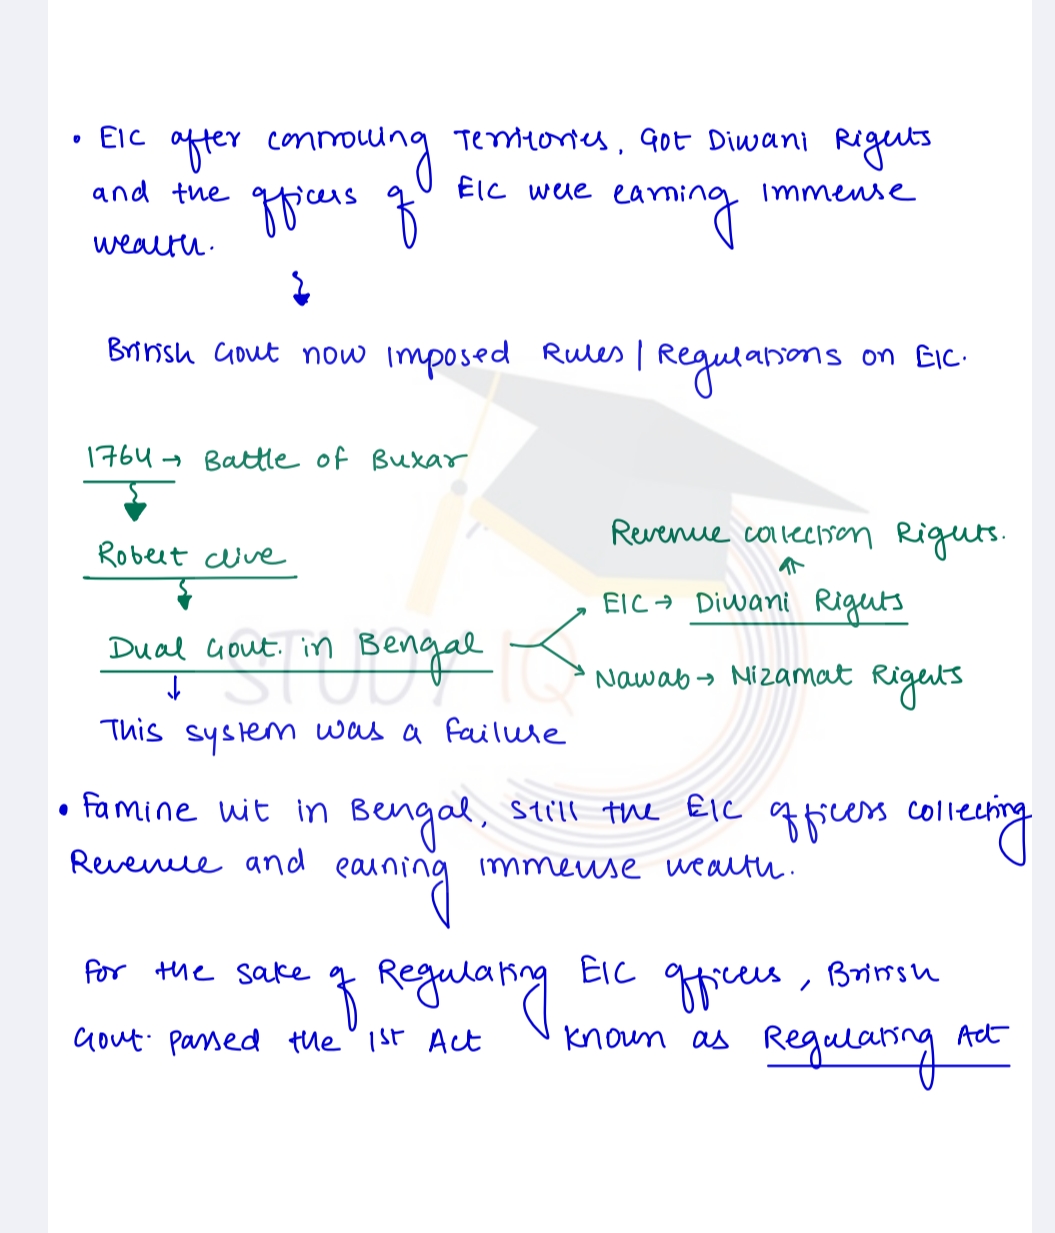 • EIC after controlling Territories, Got Diwani Rights
and the officers of EIC were earning Immense
wealth.
British Govt now Imposed Rules | Regulations on EIC.
1764 → Battle of Buxar
Revenue collection Rights.
Robert clive
EIC → Diwani Rights
Dual Govt. in Bengal
Nawab → Nizamat Rights
STUDY IQ
This system was a failure
• Famine hit in Bengal, still the EIC officers collecting
Revenue and earning immense wealth.
For the sake of Regulating EIC officers, British
Govt. Passed the 1st Act known as Regulating Act